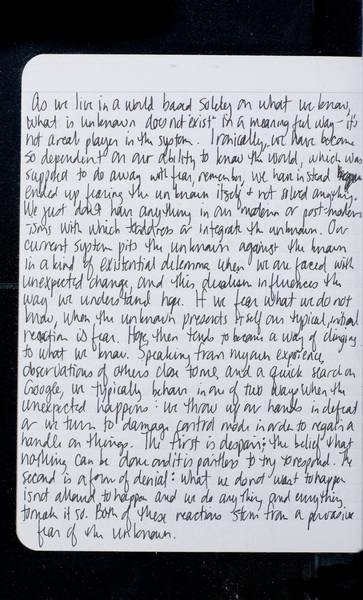 As we live in a world based solely on what we know,
what is unknown does not exist in a meaningful way - it's
not a real player in the system. Ironically, we have become
so dependent on our ability to know the world, which was
supposed to do away with fear, remember, we have instead
ended up fearing the unknown itself & not solved anything.
We just don't have anything in our modern or post-modern
isms with which to address or integrate the unknown. Our
current system pits the unknown against the known
in a kind of existential dilemma when we are faced with
unexpected change, and this dualism influences the
way we understand hope. If we fear what we do not
know, when the unknown presents itself our typical, initial
reaction is fear. Hope then tends to become a way of clinging
to what we know. Speaking from my own experience,
observations of others close to me, and a quick search on
Google, we typically behave in one of two ways when the
unexpected happens: we throw up our hands in defeat
or we turn to damage control mode in order to regain a
handle on things. The first is despair; the belief that
nothing can be done and it is pointless to try to respond. The
second is a form of denial: what we do not want to happen
is not allowed to happen and we do anything and everything
to make it so. Both of these reactions stem from a pervasive
fear of the unknown.